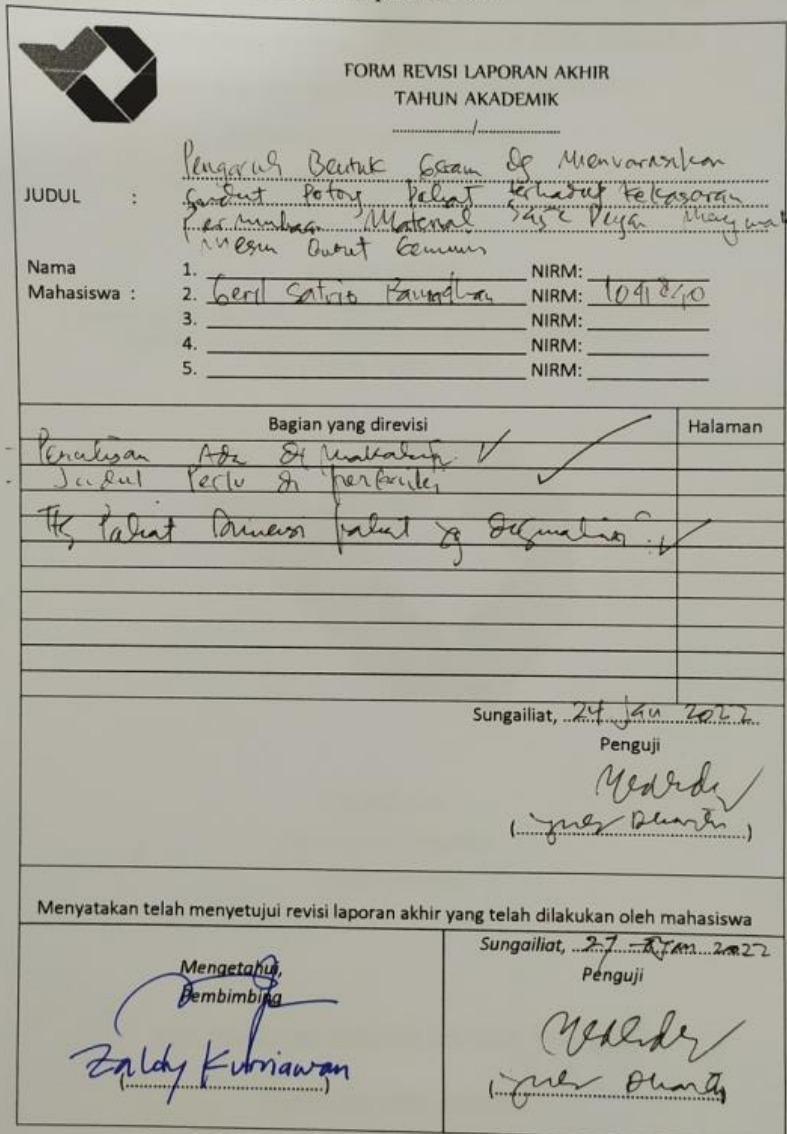 FORM REVISI LAPORAN AKHIR
TAHUN AKADEMIK
............/............
JUDUL :
Pengaruh Bentuk Geram dg Menvariasikan
Sudut Potong Pahat terhadap Kekasaran
Permukaan Material Baja
Mesin Bubut
Nama
Mahasiswa :
1. NIRM:
2. Geril Satrio NIRM: 1041840
3. NIRM:
4. NIRM:
5. NIRM:
Bagian yang direvisi Halaman
- Penulisan Ada di Makalah. ✓
- Judul Perlu di perbaiki ✓
Pahat Dimensi pahat yg digunakan ✓
Sungailiat, 24 Jan 2022
Penguji
Menyatakan telah menyetujui revisi laporan akhir yang telah dilakukan oleh mahasiswa
Mengetahui,
Pembimbing
Zaldy Kurniawan
Sungailiat, 27 Jan 2022
Penguji